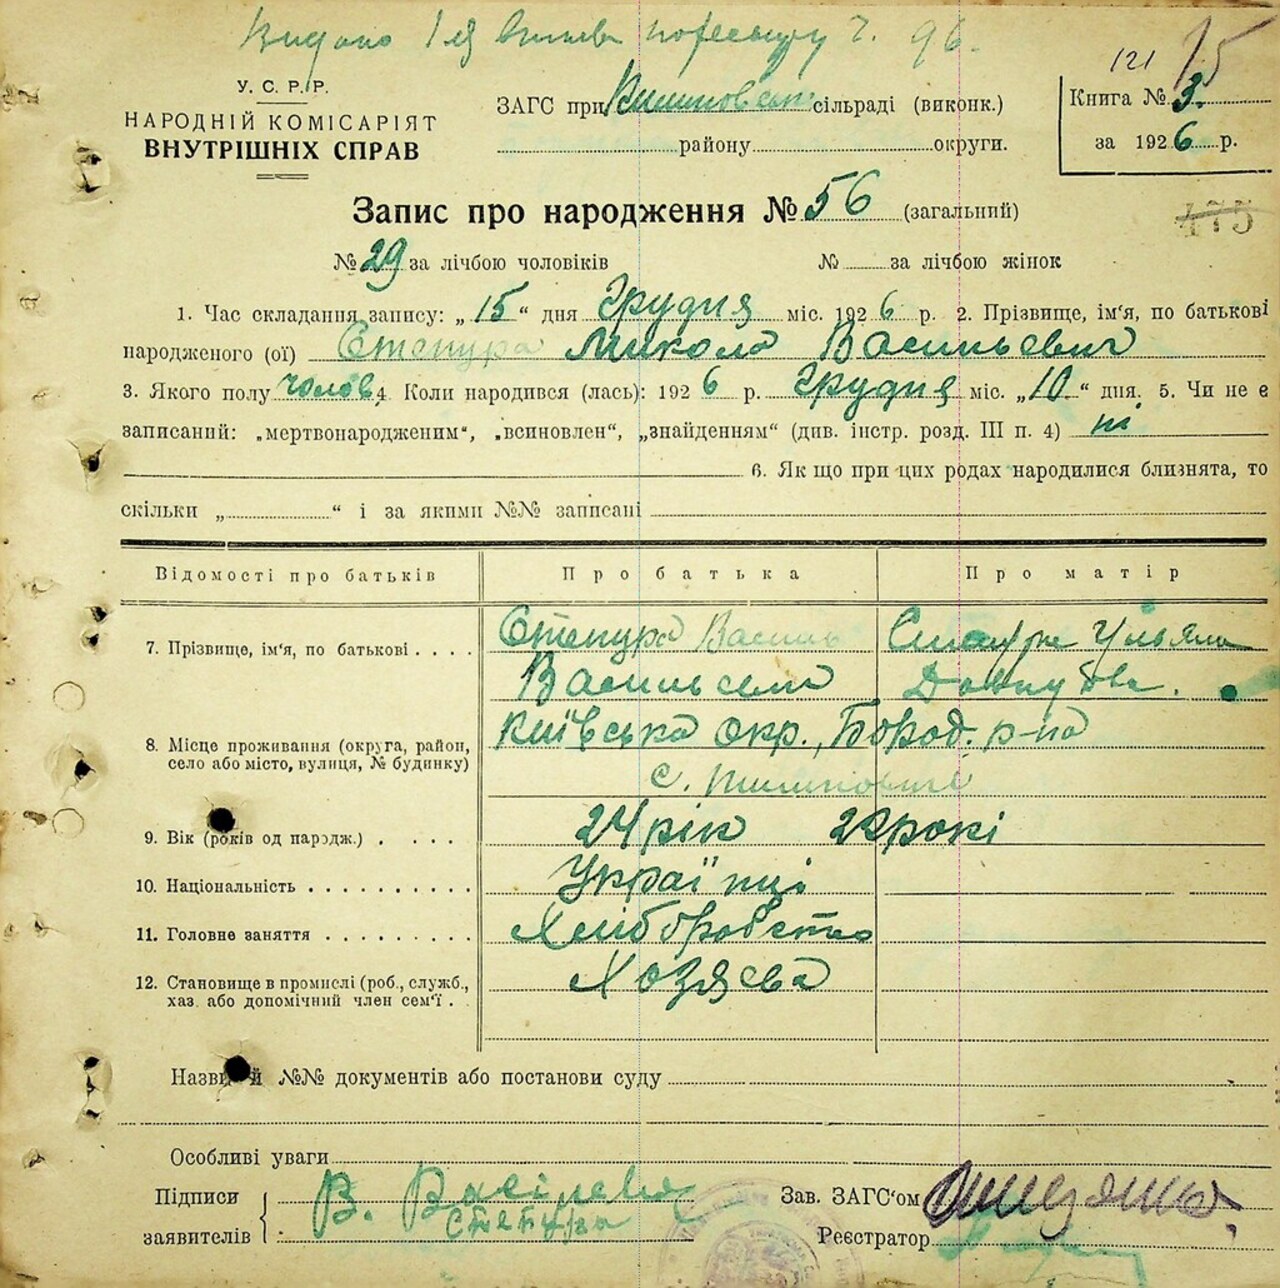 Видано
121 15
У. С. Р. Р.
НАРОДНІЙ КОМІСАРІЯТ
ВНУТРІШНІХ СПРАВ
ЗАГС при сільраді (виконк.)
району округи.
Книга № 3.
за 1926 р.
Запис про народження № 56 (загальний)
475
№ 29 за лічбою чоловіків № за лічбою жінок
1. Час складання запису: „15“ дня Грудня міс. 1926 р. 2. Прізвище, ім'я, по батькові
народженого (ої) Степура Микола Васильевич
3. Якого полу чолов. 4. Коли народився (лась): 1926 р. Грудня міс. „10“ дня. 5. Чи не є
записаний: „мертвонародженим“, „всиновлен“, „знайденням“ (див. інстр. розд. III п. 4) ні
6. Як що при цих родах народилися близнята, то
скільки „ “ і за якими №№ записані
Відомості про батьків Про батька Про матір
7. Прізвище, ім'я, по батькові . . . . Степура Василь Степура Ульяна
Васильевич
8. Місце проживання (округа, район, село або місто, вулиця, № будинку) Київська окр., Бород. р-на
с. Пилиповичі
9. Вік (років од народж.) . . . . 24 рік 22 рокі
10. Національність . . . . . . . . . . Українці
11. Головне заняття . . . . . . . . . Хліборобство
12. Становище в промислі (роб., служб., хаз. або допомічний член сем'ї . . Хозяєва
Назви й №№ документів або постанови суду
Особливі уваги
Підписи
заявителів
В. Васілєва
Степура
Зав. ЗАГС'ом
Реєстратор